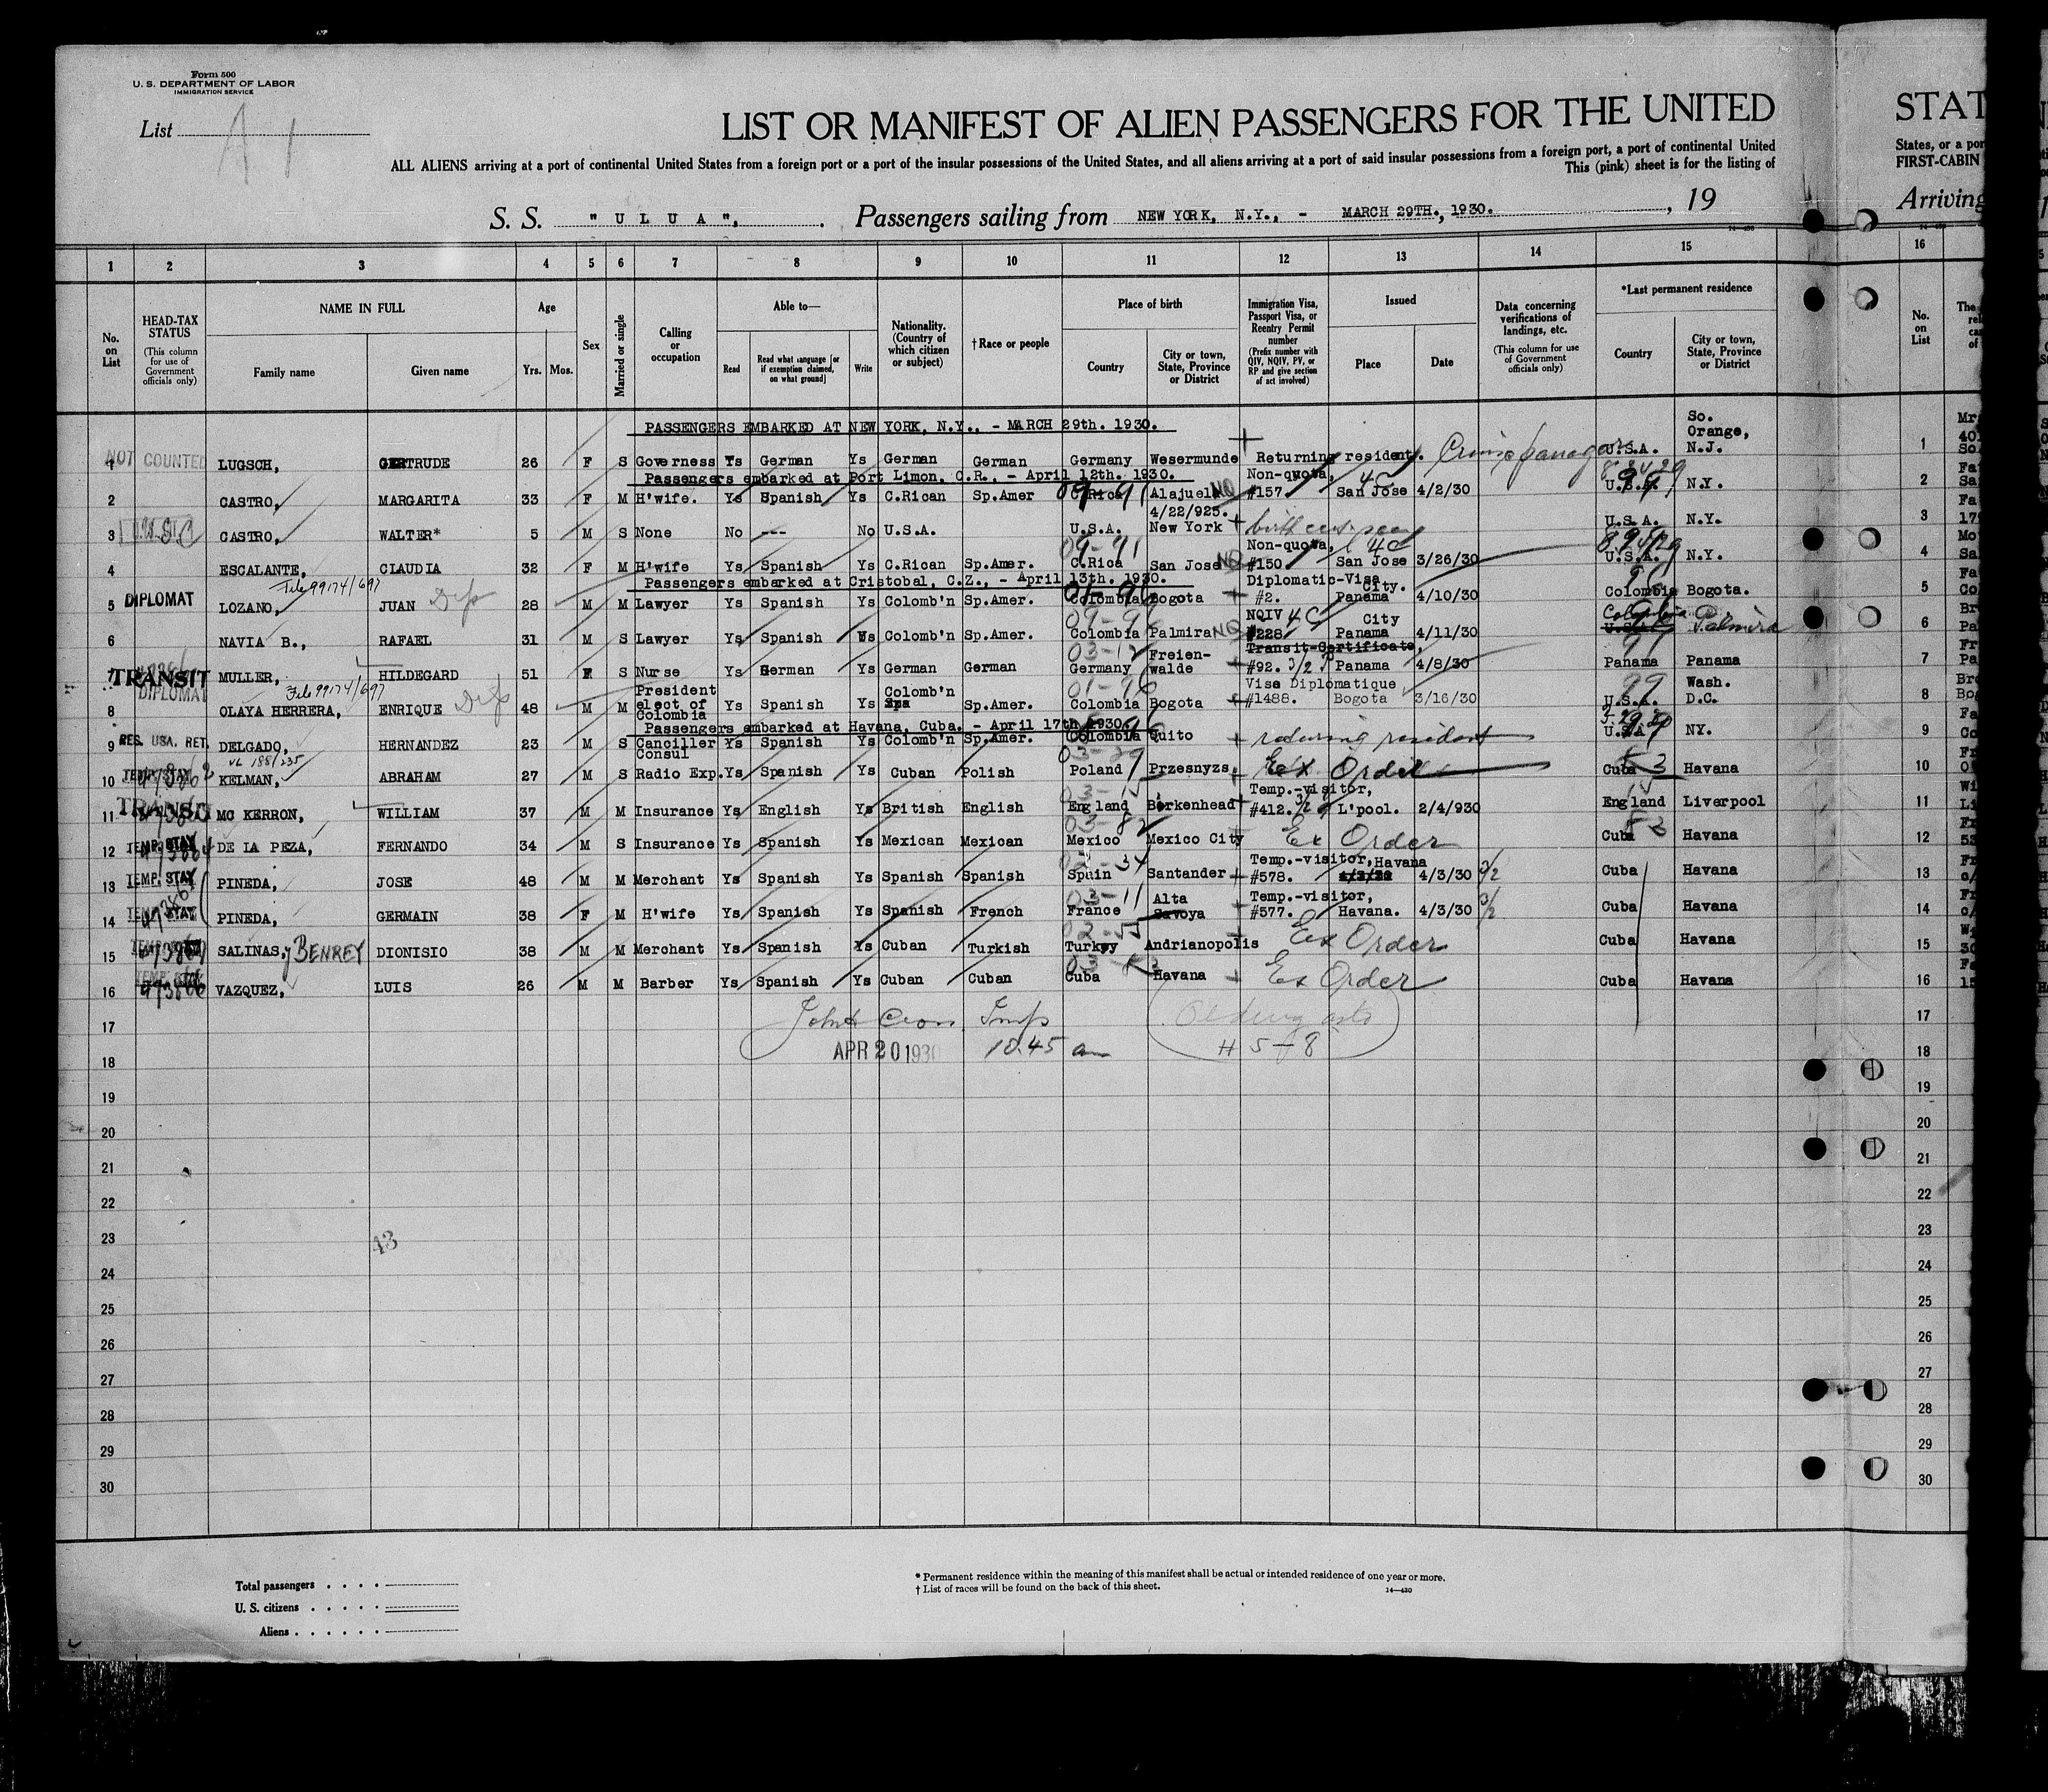 Form 500
U. S. DEPARTMENT OF LABOR
IMMIGRATION SERVICE
List A 1
LIST OR MANIFEST OF ALIEN PASSENGERS FOR THE UNITED
STAT
ALL ALIENS arriving at a port of continental United States from a foreign port or a port of the insular possessions of the United States, and all aliens arriving at a port of said insular possessions from a foreign port, a port of continental United
States, or a por
This (pink) sheet is for the listing of
FIRST-CABIN
S. S. " U L U A ", Passengers sailing from NEW YORK, N.Y., - MARCH 29TH., 1930. , 19
Arriving
1 2 3 4 5 6 7 8 9 10 11 12 13 14 15 16
No. on List
HEAD-TAX STATUS (This column for use of Government officials only)
NAME IN FULL
Family name Given name
Age Yrs. Mos.
Sex
Married or single
Calling or occupation
Able to—
Read Read what language [or if exemption claimed, on what ground] Write
Nationality. (Country of which citizen or subject)
†Race or people
Place of birth
Country City or town, State, Province or District
Immigration Visa, Passport Visa, or Reentry Permit number (Prefix number with QIV, NQIV, PV, or RP and give section of act involved)
Issued
Place Date
Data concerning verifications of landings, etc. (This column for use of Government officials only)
*Last permanent residence
Country City or town, State, Province or District
No. on List
PASSENGERS EMBARKED AT NEW YORK, N.Y., - MARCH 29th. 1930.
1 NOT COUNTED LUGSCH, GERTRUDE 26 F S Governess Ys German Ys German German Germany Wesermunde Returning resident. U.S.A. So. Orange, N.J. 1
Passengers embarked at Port Limon, C.R., - April 12th. 1930.
2 CASTRO, MARGARITA 33 F M H'wife. Ys Spanish Ys C.Rican Sp.Amer C.Rica Alajuela NQ Non-quota, #157. 4C San Jose 4/2/30 U.S.A. N.Y. 2
3 U.S.C CASTRO, WALTER* 5 M S None No --- No U.S.A. U.S.A. 4/22/925. New York U.S.A. N.Y. 3
4 ESCALANTE, CLAUDIA 32 F M H'wife Ys Spanish Ys C.Rican Sp.Amer. 09-91 C.Rica San Jose NQ Non-quota, #150. 4C San Jose 3/26/30 U.S.A. N.Y. 4
Passengers embarked at Cristobal, C.Z., - April 13th. 1930.
5 DIPLOMAT File 99174/697 LOZANO, JUAN Dip 28 M M Lawyer Ys Spanish Ys Colomb'n Sp.Amer. Colombia Bogota Diplomatic-Visa #2. Panama City. 4/10/30 Colombia Bogota. 5
6 NAVIA B., RAFAEL 31 M S Lawyer Ys Spanish Ys Colomb'n Sp.Amer. 09-96 Colombia Palmira NQ NQIV 4C #228 Panama City 4/11/30 Colombia U.S.A. Palmira 6
7 TRANSIT MULLER, HILDEGARD 51 F S Nurse Ys German Ys German German 03-12 Germany Freienwalde Transit-Certificate, #92. 3/2 Panama 4/8/30 Panama Panama 7
8 DIPLOMAT File 99174/697 OLAYA HERRERA, ENRIQUE Dip 48 M M President elect of Colombia Ys Spanish Ys Colomb'n Sp.Amer. 01-96 Colombia Bogota Visa Diplomatique #1488. Bogota 3/16/30 U.S.A. Wash. D.C. 8
Passengers embarked at Havana, Cuba. - April 17th 1930.
9 RES. USA. RET. DELGADO, HERNANDEZ 23 M S Canciller Consul Ys Spanish Ys Colomb'n Sp.Amer. Colombia Quito returning resident U.S.A. NY. 9
10 TEMP. STAY VL 188/235 KELMAN, ABRAHAM 27 M S Radio Exp. Ys Spanish Ys Cuban Polish Poland Przesnyzs Ex Order Cuba Havana 10
11 TRANSIT MC KERRON, WILLIAM 37 M M Insurance Ys English Ys British English England Birkenhead Temp.-visitor, #412. 3/2 L'pool. 2/4/930 England Liverpool 11
12 TEMP. STAY DE LA PEZA, FERNANDO 34 M S Insurance Ys Spanish Ys Mexican Mexican 03-82 Mexico Mexico City Ex Order Cuba Havana 12
13 TEMP. STAY PINEDA, JOSE 48 M M Merchant Ys Spanish Ys Spanish Spanish Spain Santander Temp.-visitor, #578. Havana 4/3/30 3/2 Cuba Havana 13
14 TEMP. STAY PINEDA, GERMAIN 38 F M H'wife Ys Spanish Ys Spanish French 03-11 France Alta Savoya Temp.-visitor, #577. Havana. 4/3/30 3/2 Cuba Havana 14
15 SALINAS, y BENREY DIONISIO 38 M M Merchant Ys Spanish Ys Cuban Turkish Turkey Andrianopolis Ex Order Cuba Havana 15
16 VAZQUEZ, LUIS 26 M M Barber Ys Spanish Ys Cuban Cuban Cuba Havana Ex Order Cuba Havana 16
17 17
APR 20 1930 10.45 am # 5-8
18 18
19 19
20 20
21 21
22 22
23 43 23
24 24
25 25
26 26
27 27
28 28
29 29
30 30
Total passengers . . . .
U. S. citizens . . . . .
Aliens . . . . . .
* Permanent residence within the meaning of this manifest shall be actual or intended residence of one year or more.
† List of races will be found on the back of this sheet.
14—430